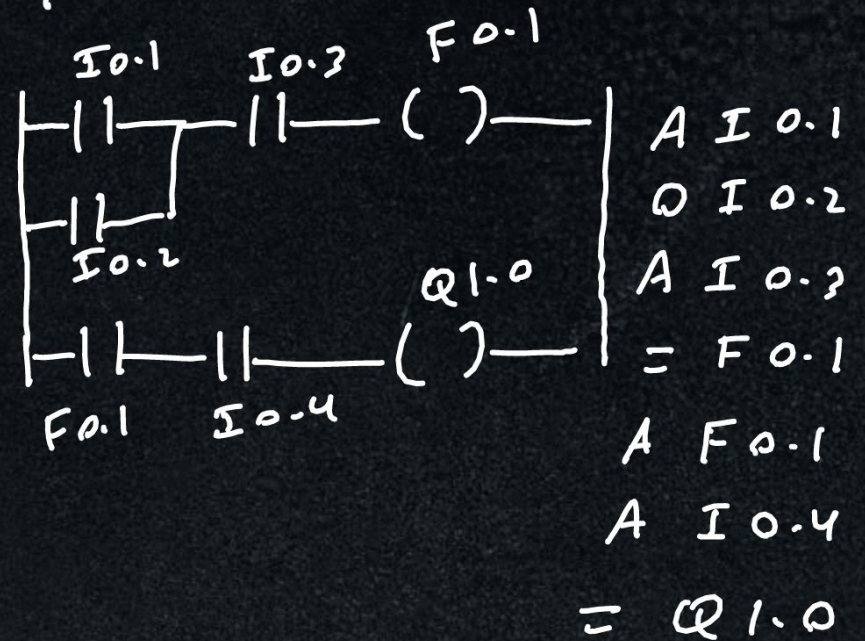 I0.1 I0.3 F0.1
I0.2
Q1.0
F0.1 I0.4
A I 0.1
O I 0.2
A I 0.3
= F 0.1
A F 0.1
A I 0.4
= Q 1.0